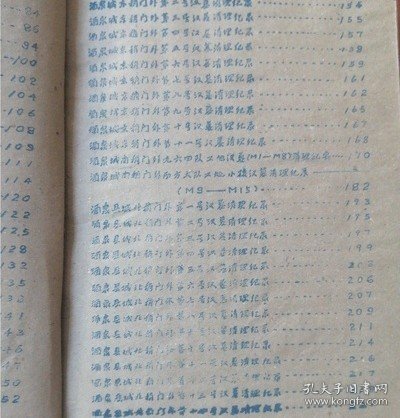 94
86
94
100
102
104
106
108
109
111
114
120
122
125
128
132
酒泉城东稍门外第二号汉墓清理纪录 154
酒泉城东稍门外第三号汉墓清理纪录 155
酒泉城东稍门外第四号汉墓清理纪录 157
酒泉城东稍门外第五号汉墓清理纪录 158
酒泉城东稍门外第六号汉墓清理纪录 159
酒泉城东稍门外第七号汉墓清理纪录 161
酒泉城东稍门外第八号汉墓清理纪录 163
酒泉城东稍门外第九号汉墓清理纪录 165
酒泉城东稍门外第十号汉墓清理纪录 167
酒泉城东稍门外第十一号汉墓清理纪录 168
酒泉城南稍门外九六四队工地汉墓(M1—M8)清理纪录 170
酒泉城南稍门外西方大队工地小型汉墓清理纪录
(M9——M15) 182
酒泉县城北稍门外第一号汉墓清理纪录 193
酒泉县城北稍门外第二号汉墓清理纪录 195
酒泉县城北稍门外第三号汉墓清理纪录 197
酒泉县城北稍门外第四号汉墓清理纪录 199
酒泉县城北稍门外第五号汉墓清理纪录 213
酒泉县城北稍门外第六号汉墓清理纪录 206
酒泉县城北稍门外第七号汉墓清理纪录 207
酒泉县城北稍门外第八号汉墓清理纪录 209
酒泉县城北稍门外第九号汉墓清理纪录 211
酒泉县城北稍门外第十号汉墓清理纪录 214
酒泉县城北稍门外第十一号汉墓清理纪录 216
酒泉县城北稍门外第十二号汉墓清理纪录 217
酒泉县城北稍门外第十三号汉墓清理纪录
酒泉县城北稍门外第十四号汉墓清理纪录
孔夫子旧书网
www.kongfz.com